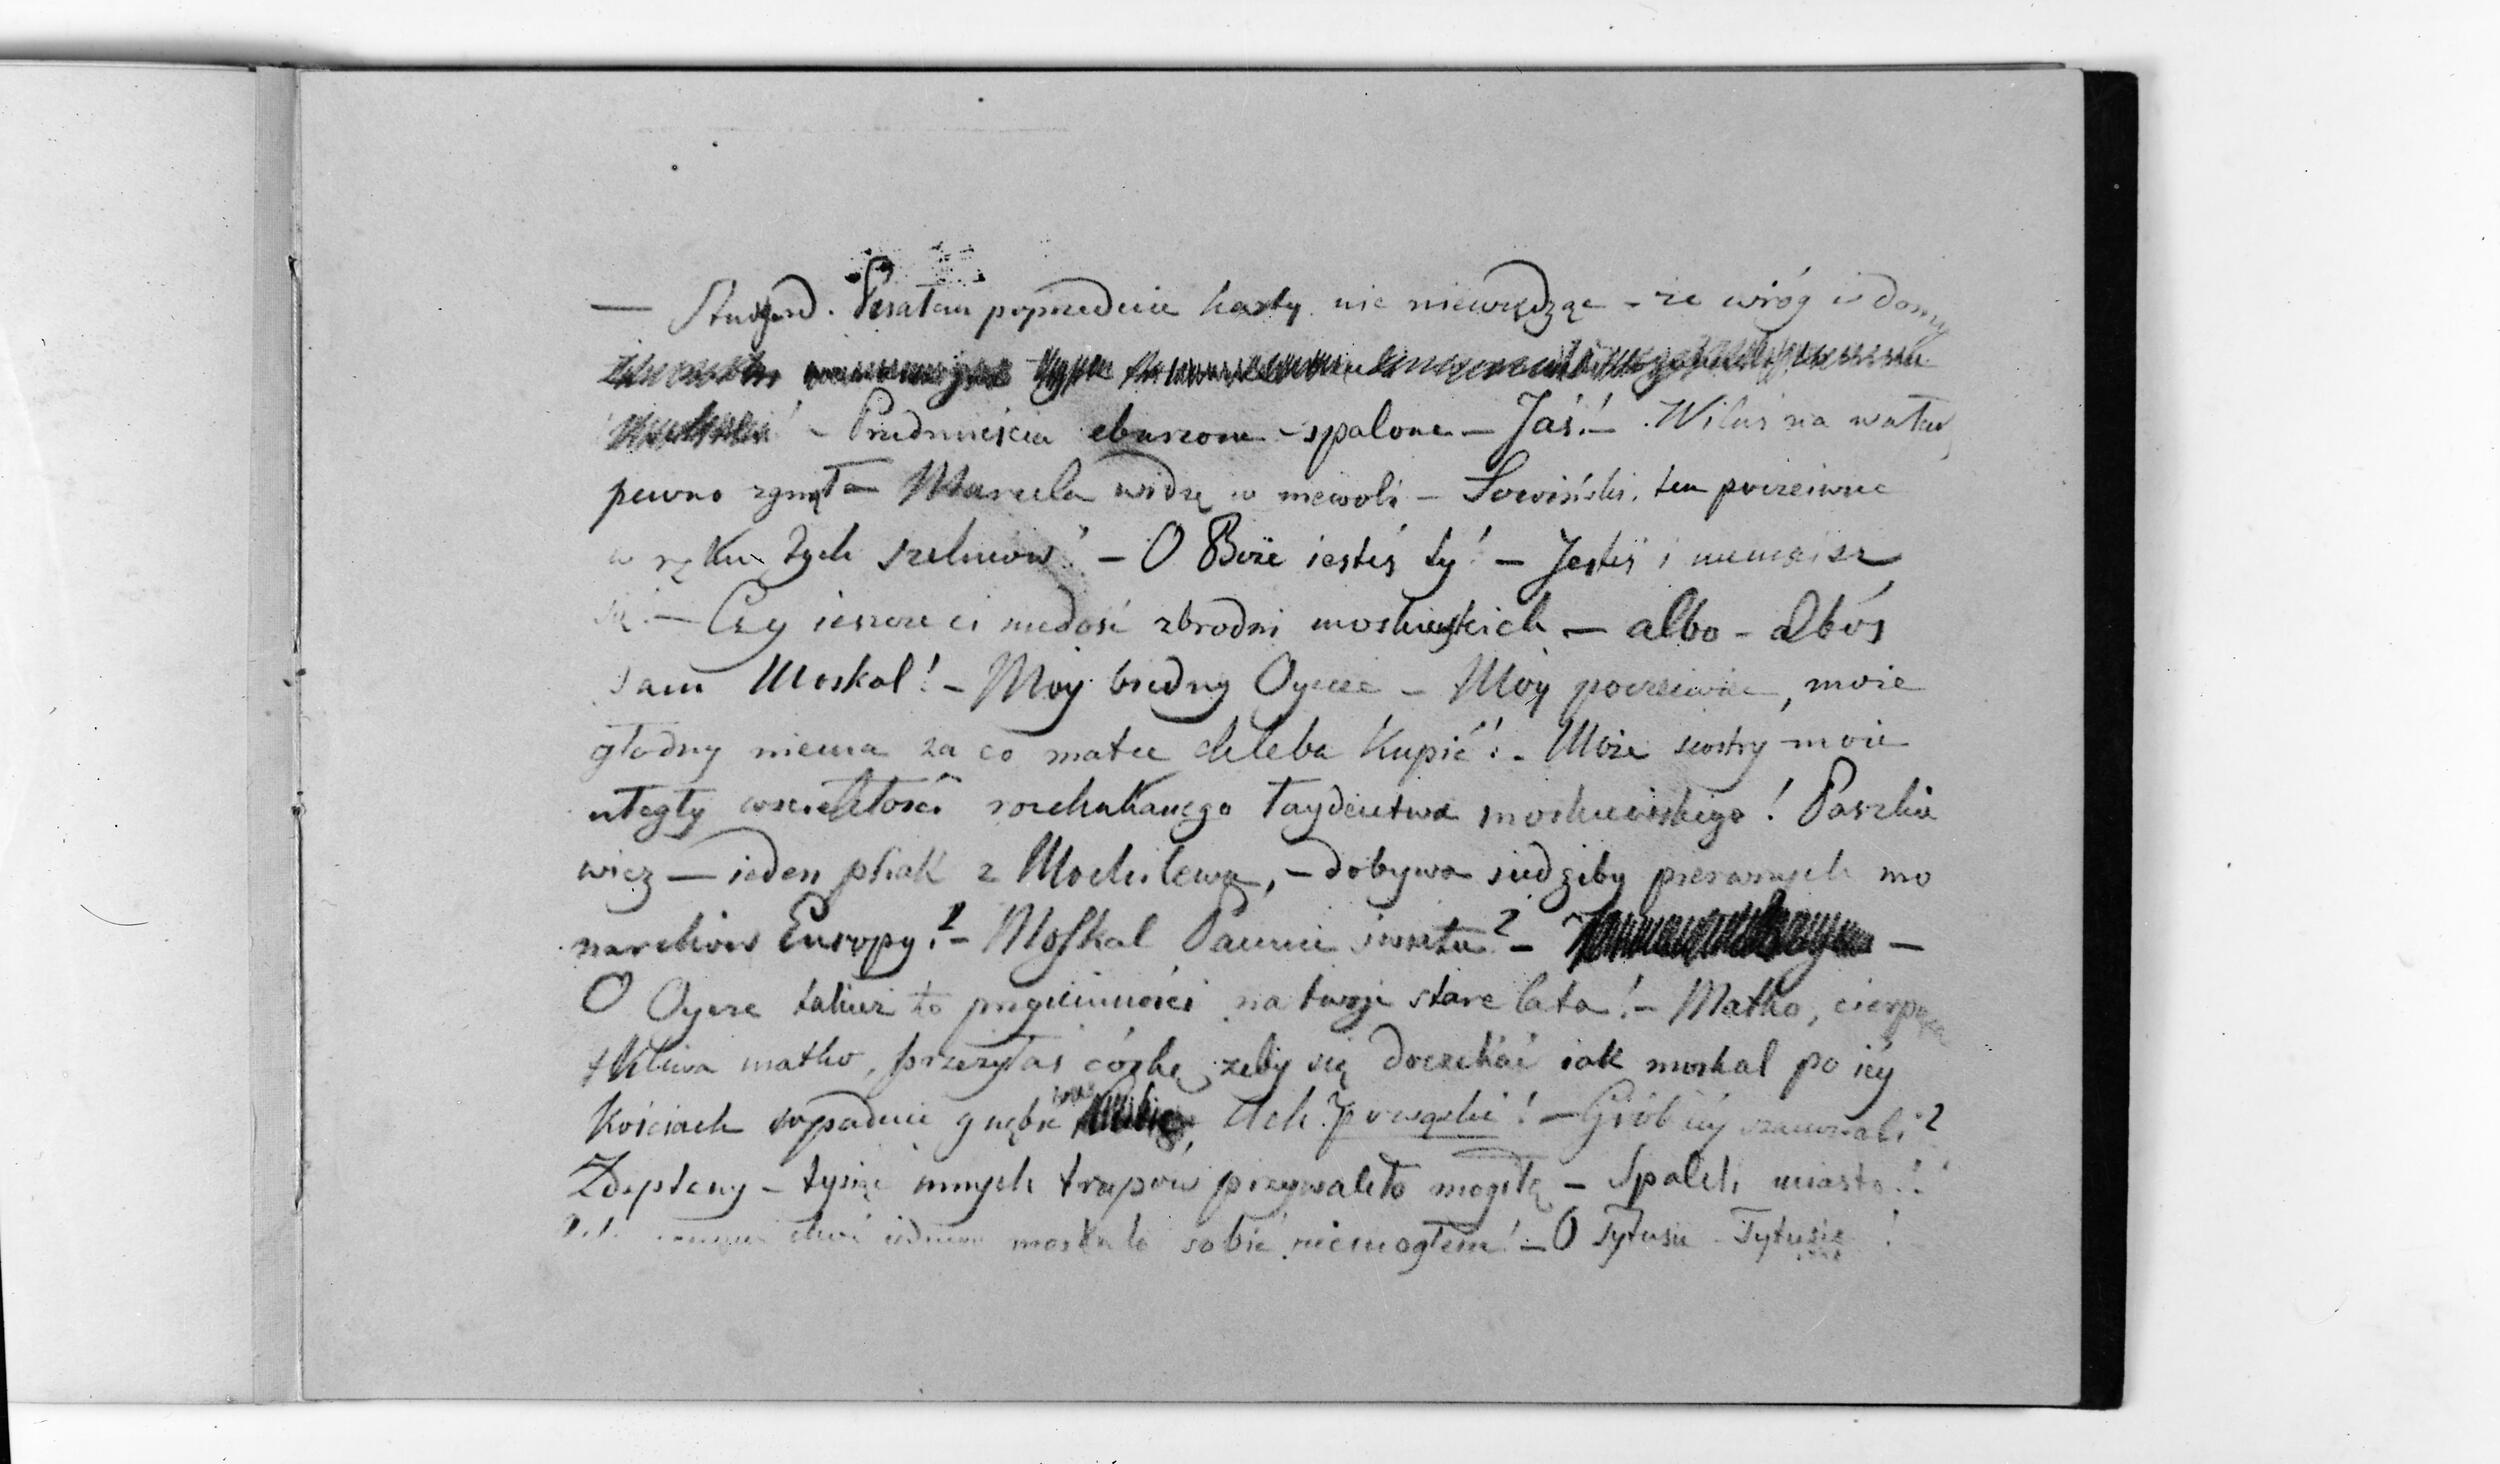 — Stuttgard. Pisałem poprzednie karty nic niewiedząc – że wróg w domu
– Przedmieścia zburzone – spalone – Jaś! – Wiluś na wałach
pewno zginął – Marcela widzę w niewoli – Sowiński, ten poczciwiec
w ręku tych szelmów! – O Boże jesteś ty! – Jesteś i niemścisz
się! – Czy ieszcze ci niedość zbrodni moskiewskich – albo – alboś
sam Moskal! – Móy biedny Oyciec – Móy poczciwiec, może
głodny niema za co matce chleba kupić! – Może siostry moie
uległy wściekłości rozhukanego łaydactwa moskiewskiego! Paszkie
wicz – ieden psiak z Mochilewa, – dobywa siedziby pierwszych mo
narchów Europy!? – Moskal Panem świata? – –
O Oycze takież to przyiemności na twoje stare lata! – Matko, cierpiąca
tkliwa matko, przeżyłaś córkę żeby się doczekać jak moskal po iéy
kościach wpadnie gnębić was Ach Powązki! – Grób iéy szanowali?
Zdeptany – tysiąc innych trupów przywaliło mogiłę – Spalili miasto!!
choć iednego moskala zabić niemogłem! – O Tytusie – Tytusie!